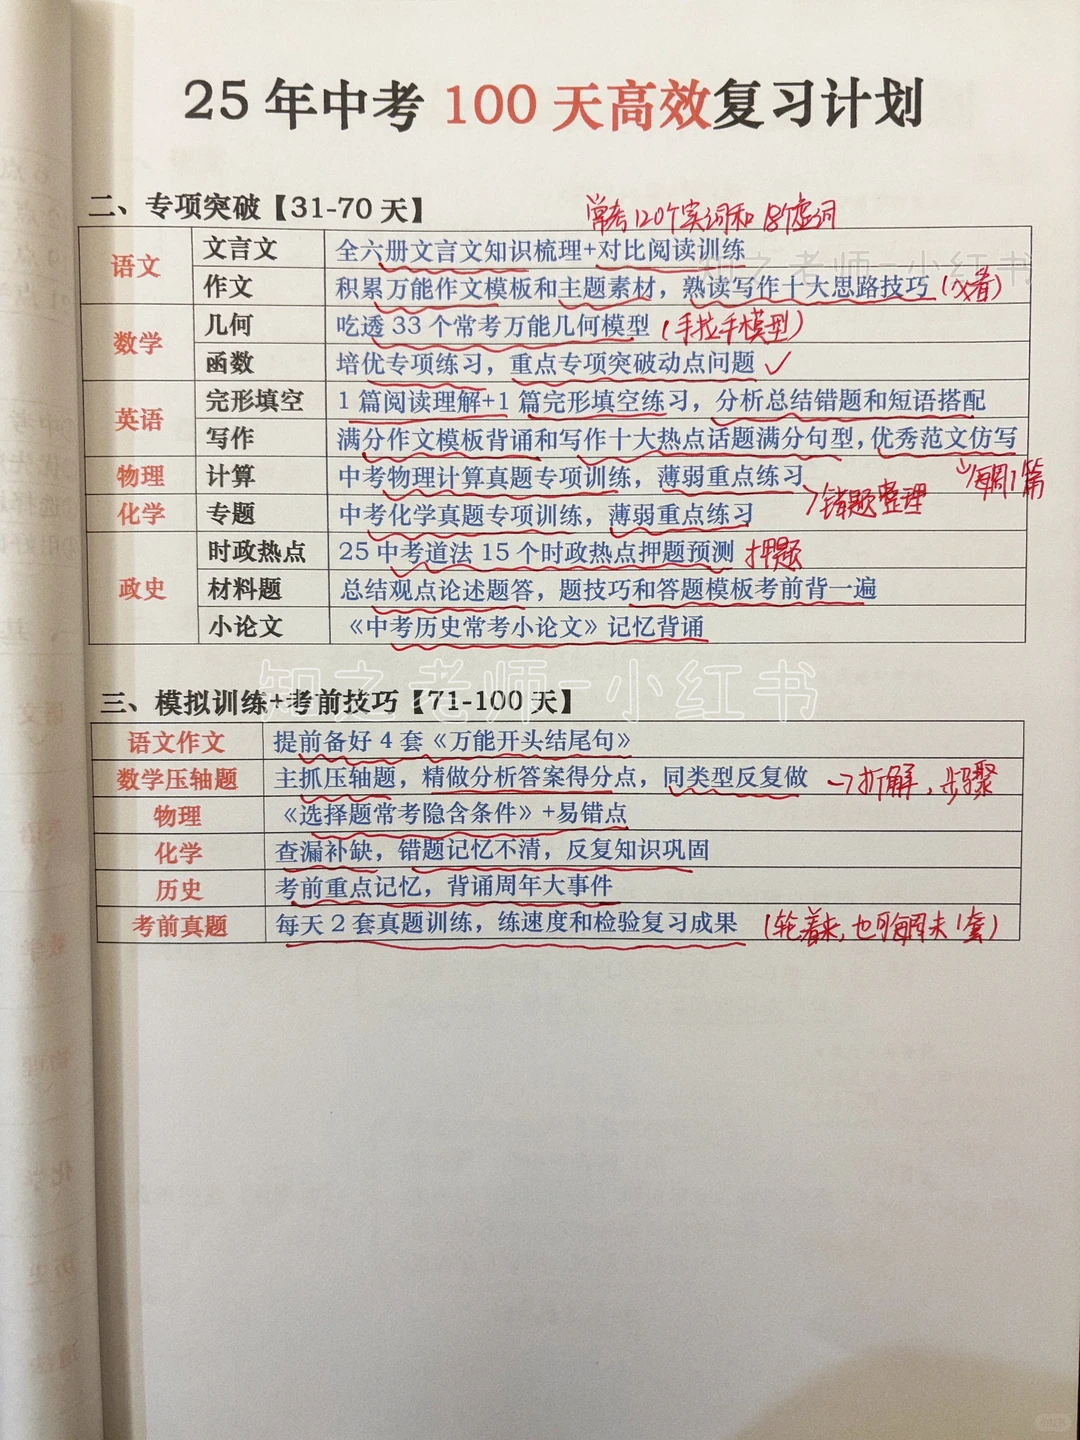 25年中考100天高效复习计划
二、专项突破【31-70天】
常考120个实词和18个虚词
语文
文言文 全六册文言文知识梳理+对比阅读训练
作文 积累万能作文模板和主题素材，熟读写作十大思路技巧（必看）
数学
几何 吃透33个常考万能几何模型（手拉手模型）
函数 培优专项练习，重点专项突破动点问题✓
英语
完形填空 1篇阅读理解+1篇完形填空练习，分析总结错题和短语搭配
写作 满分作文模板背诵和写作十大热点话题满分句型，优秀范文仿写
每周1篇
物理 计算 中考物理计算真题专项训练，薄弱重点练习
错题整理
化学 专题 中考化学真题专项训练，薄弱重点练习
政史
时政热点 25中考道法15个时政热点押题预测 押题
材料题 总结观点论述题答，题技巧和答题模板考前背一遍
小论文 《中考历史常考小论文》记忆背诵
知之老师-小红书
知之老师-小红书
三、模拟训练+考前技巧【71-100天】
语文作文 提前备好4套《万能开头结尾句》
数学压轴题 主抓压轴题，精做分析答案得分点，同类型反复做 →拆解、步骤
物理 《选择题常考隐含条件》+易错点
化学 查漏补缺，错题记忆不清，反复知识巩固
历史 考前重点记忆，背诵周年大事件
考前真题 每天2套真题训练，练速度和检验复习成果（轮着来，也可每周末1套）